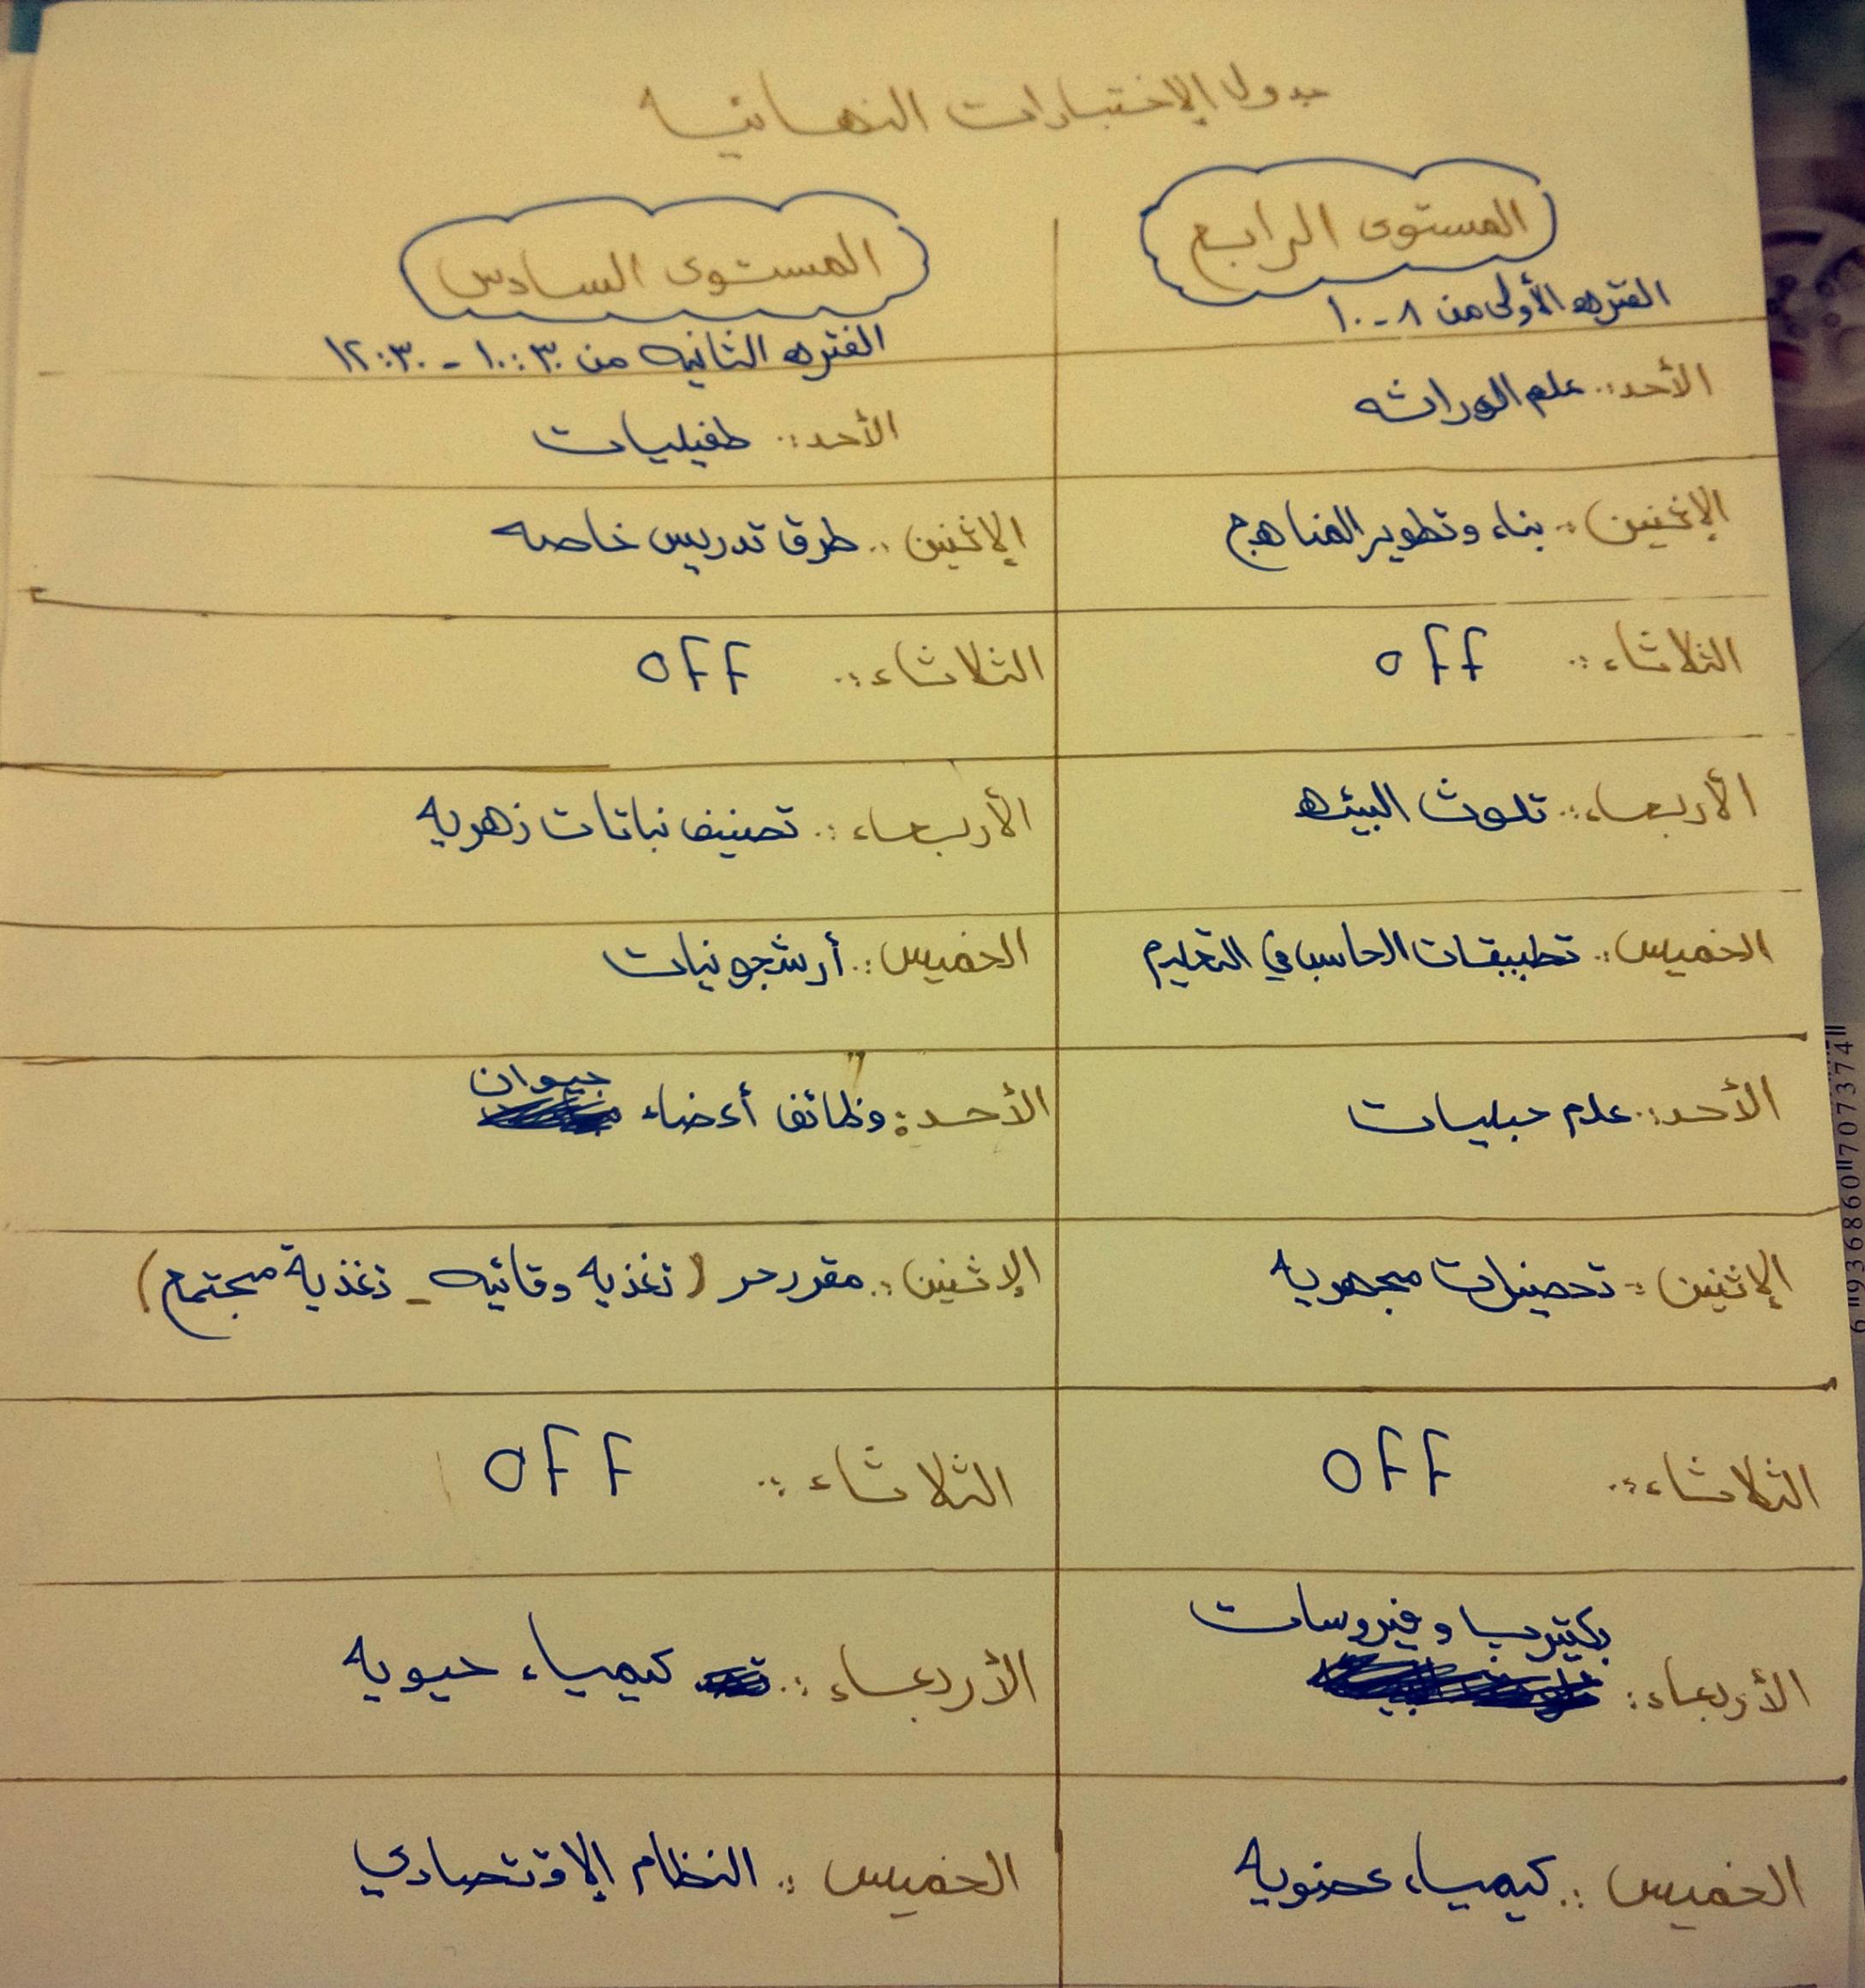 جدول الإختبارات النهائيه
المستوى الرابع
الفتره الأولى من ٨ - ١٠
الأحد:. علم الوراثه
الإثنين:. بناء وتطوير المناهج
الثلاثاء:. off
الأربعاء:. تلوث البيئه
الخميس:. تطبيقات الحاسب في التعليم
الأحد:. علم حبليات
الإثنين:. تحضيرات مجهريه
الثلاثاء:. off
بكتيريا وفيروسات
الأربعاء:
الخميس:. كيمياء عضويه
المستوى السادس
الفتره الثانيه من ١٠:٣٠ - ١٢:٣٠
الأحد:. طفيليات
الإثنين:. طرق تدريس خاصه
الثلاثاء:. off
الأربعاء:. تصنيف نباتات زهريه
الخميس:. أرشجونيات
حيوان
الأحد: وظائف أعضاء
الإثنين:. مقرر حر (تغذيه وقائيه - تغذية مجتمع)
الثلاثاء:. off
الأربعاء:. كيمياء حيويه
الخميس:. النظام الإقتصادي
6936860707374